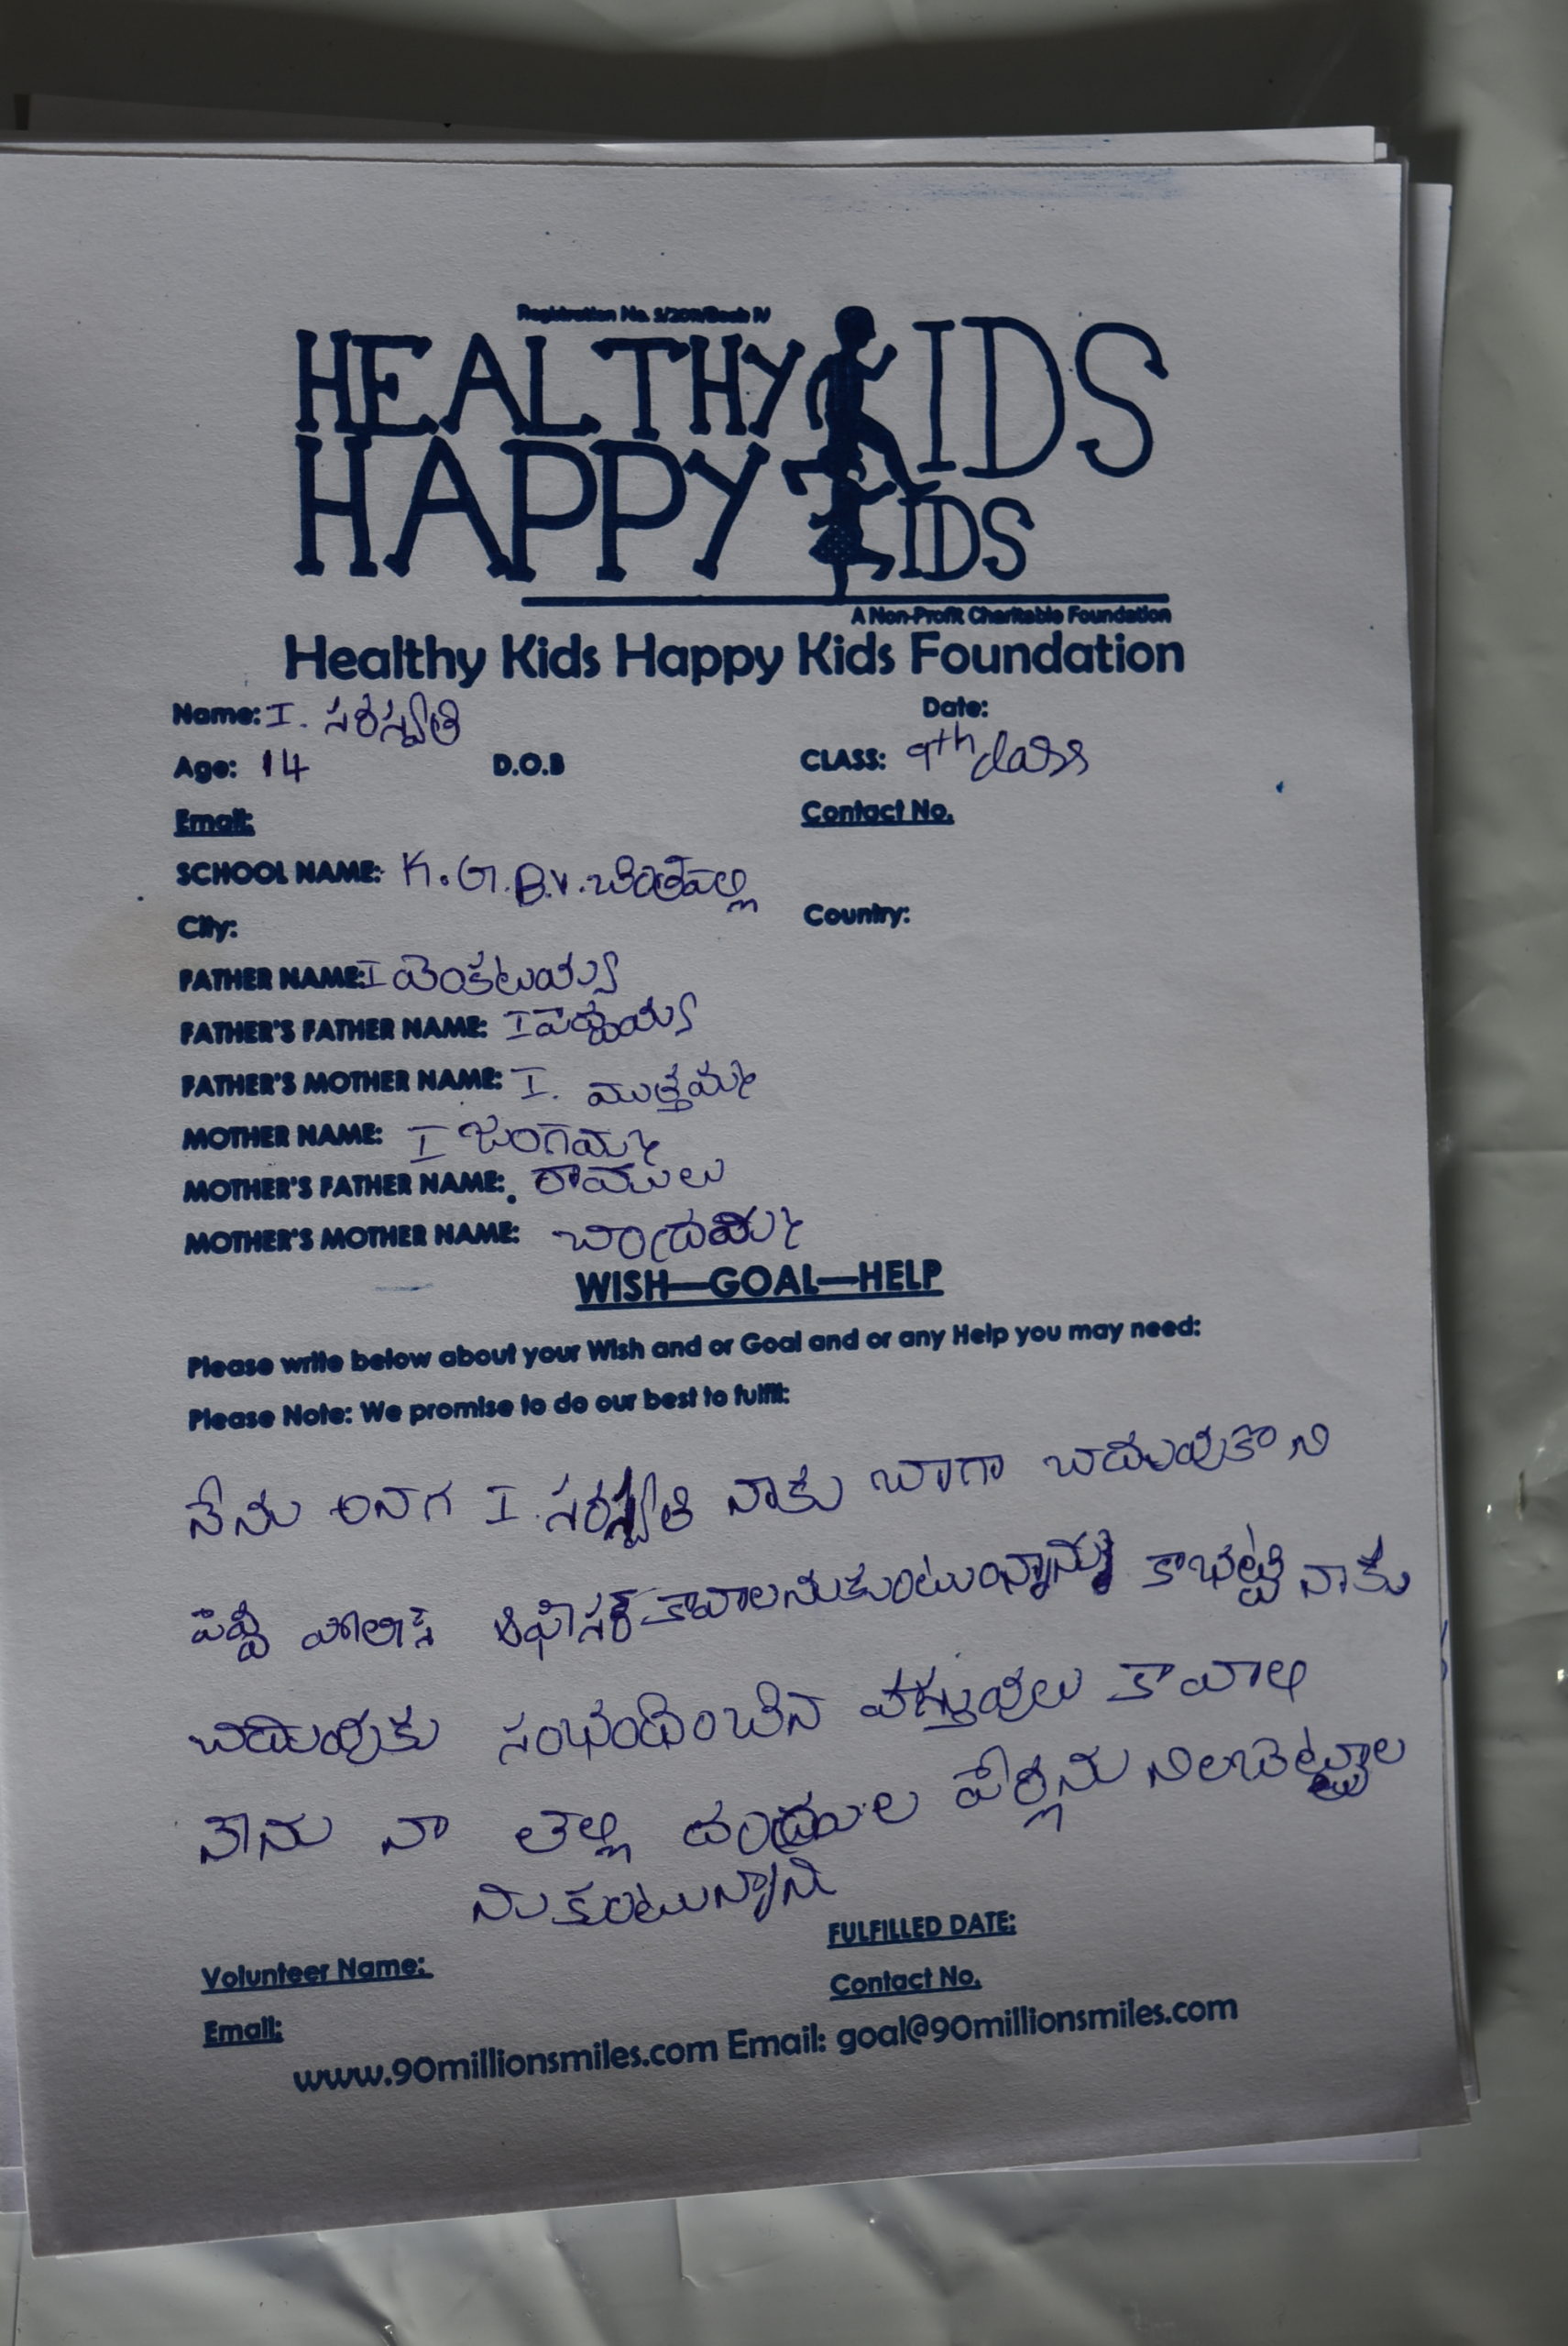 Registration No. 5/2011/Book IV
HEALTHY KIDS
HAPPY KIDS
A Non-Profit Charitable Foundation
Healthy Kids Happy Kids Foundation
Name: I. సరస్వతి Date:
Age: 14 D.O.B CLASS: 9th class
Email: Contact No.
SCHOOL NAME: K.G.B.V. చింతపల్లి
City: Country:
FATHER NAME: I వెంకటయ్య
FATHER'S FATHER NAME: I
FATHER'S MOTHER NAME: I. ముత్తమ్మ
MOTHER NAME: I జంగమ్మ
MOTHER'S FATHER NAME: రాములు
MOTHER'S MOTHER NAME: చంద్రమ్మ
WISH—GOAL—HELP
Please write below about your Wish and or Goal and or any Help you may need:
Please Note: We promise to do our best to fulfill:
నేను అనగ I. సరస్వతి నాకు బాగా చదువుకొని
పెద్ద పోలిస్ ఆఫిసర్ కావాలనుకుంటున్నాను కాభట్టి నాకు
చదువుకు సంభందించిన వస్తువులు కావాలి
నేను నా తల్లి దండ్రుల పేర్లను నిలబెట్టాల
నుకుంటున్నాను
Volunteer Name: FULFILLED DATE:
Email: Contact No.
www.90millionsmiles.com Email: goal@90millionsmiles.com